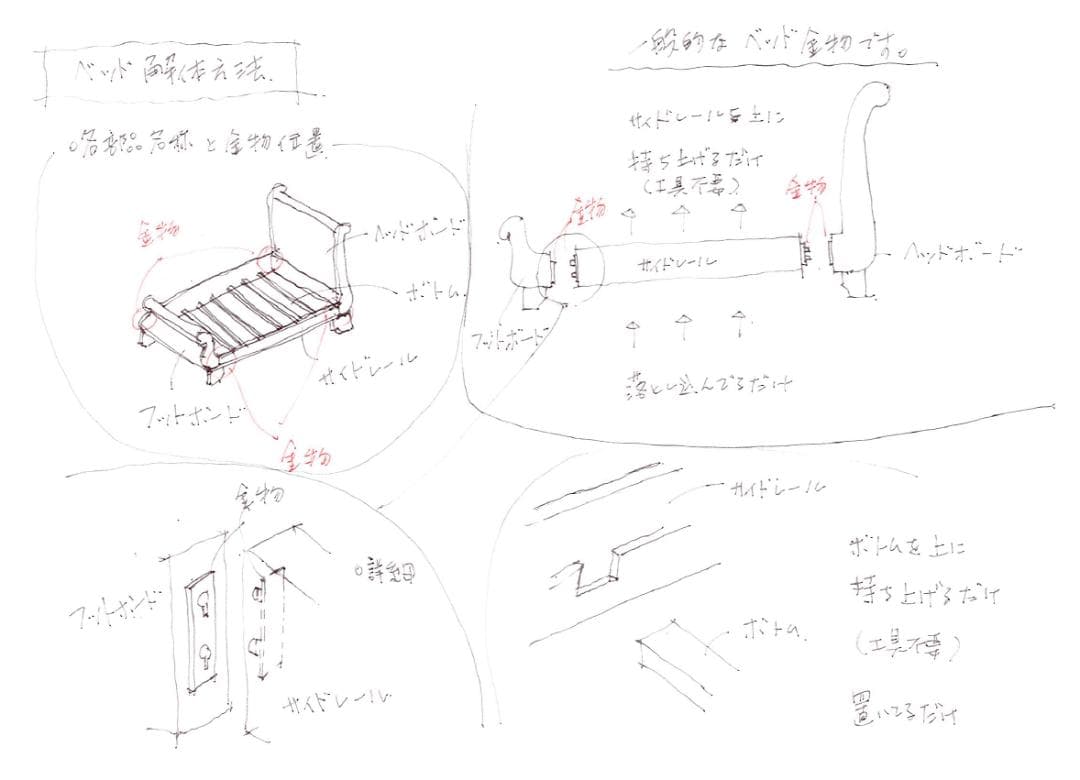 ベッド解体方法
○各部品名称と金物位置
金物
ヘッドボード
ボトム
サイドレール
フットボード
金物
一般的なベッド金物です。
サイドレールを上に
持ち上げるだけ
(工具不要)
金物
金物
サイドレール
ヘッドボード
フットボード
落とし込んでるだけ
金物
○詳細図
フットボード
サイドレール
サイドレール
ボトム
ボトムを上に
持ち上げるだけ
(工具不要)
置いてるだけ